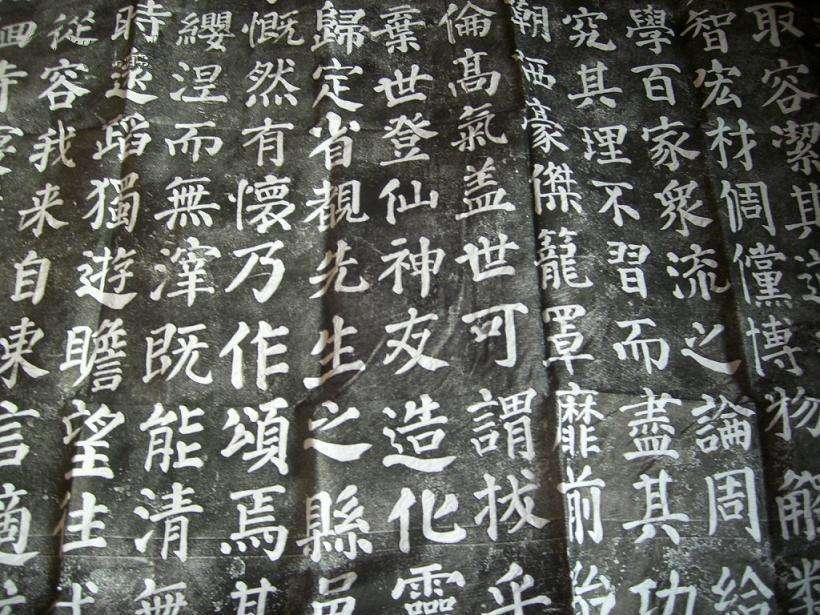 取容潔其
智宏材倜儻博物觸類
學百家衆流之論周給
究其理不習而盡其功
嘲哂豪傑籠罩靡前跆
倫髙氣盖世可謂拔乎
棄世登仙神友造化靈
歸定省覩先生之縣邑
慨然有懷乃作頌焉其
纓涅而無滓既能清無
時遠蹈獨遊瞻望往代
從容我来自東言適